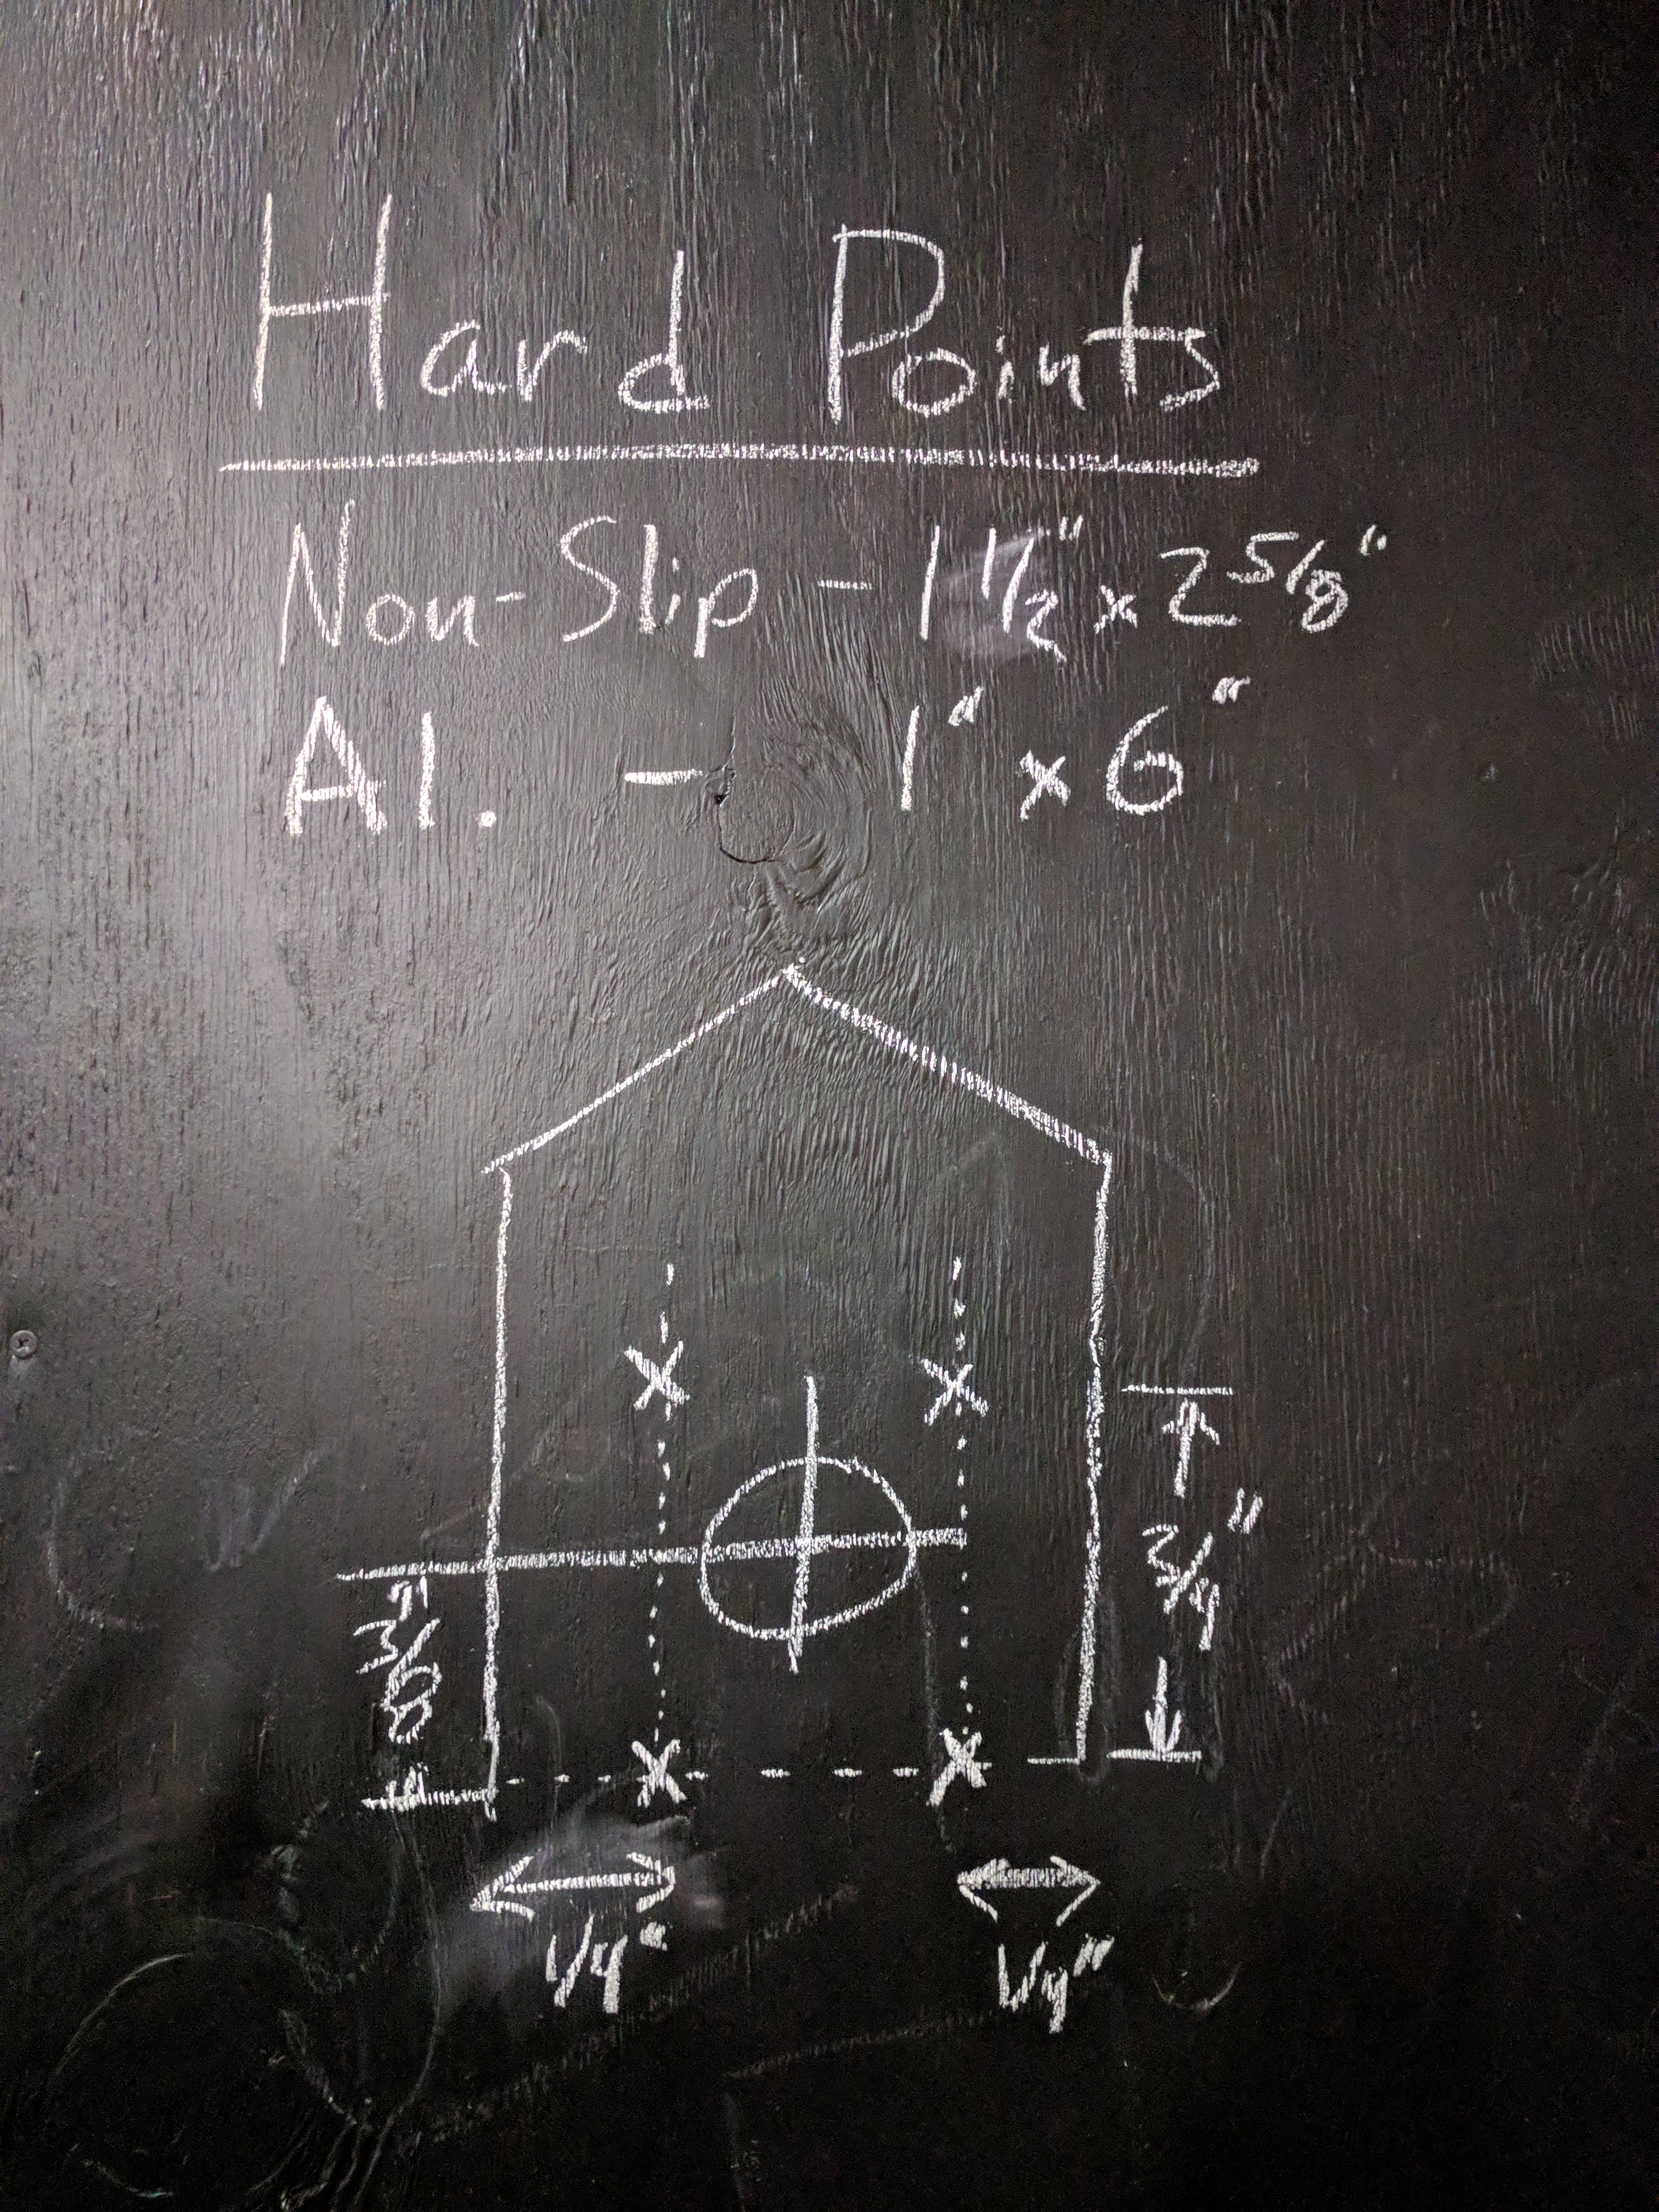 Hard Points
Non-Slip - 1 1/2" x 2 5/8"
Al. - 1" x 6"
3/4"
3/8"
1/4" 1/4"